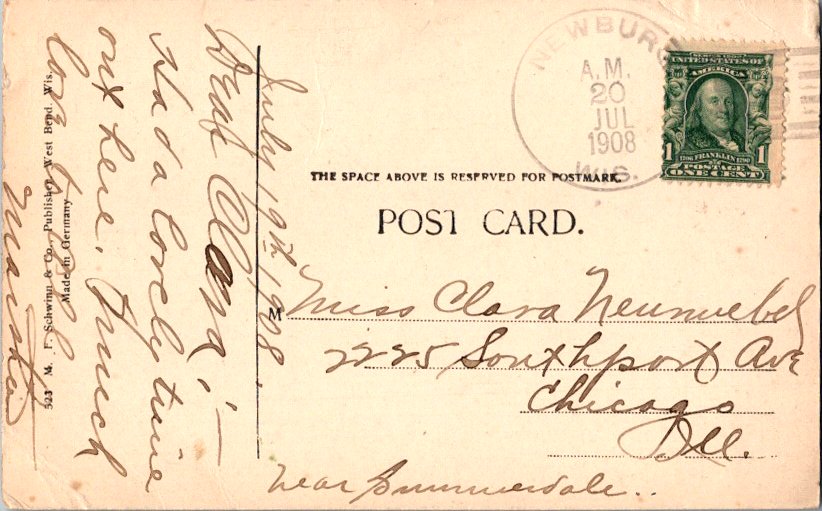 July 19th, 1908.
Dear Clara,!—
Had a lovely time
out here. Much
love to all
Martha
523 M. F. Schwinn & Co., Publisher, West Bend. Wis.
Made in Germany
NEWBURG
A.M.
20
JUL
1908
WIS.
SERIES 1902
UNITED STATES OF
AMERICA
1 1
1706 FRANKLIN 1790
POSTAGE
ONE CENT
THE SPACE ABOVE IS RESERVED FOR POSTMARK.
POST CARD.
M Miss Clara
2225 Southport Ave
Chicago
Ill.
near Summerdale..